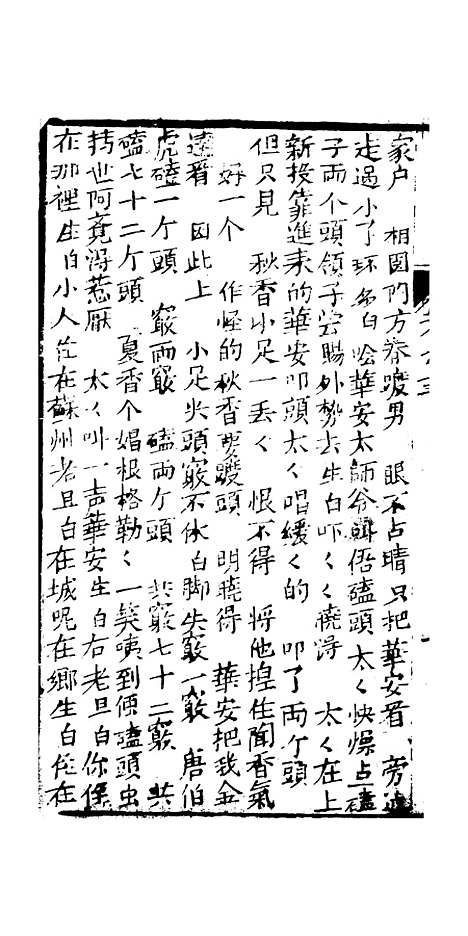 家户　相国门方养嗳男　眼不占睛只把華安看　旁边
走過小丫环名白唅華安太師爷嘱俉磕頭太〱快燥点磕
子両个頭領子尝賜外势去生白吓〱〱曉得　太〱在上
新投靠進来的華安叩頭太〱唱緩〱的　叩了両个頭
但只見　秋香小足一丢〱　恨不得　将他揑住聞香氣
好一个　作怪的秋香要嗳頭　明曉得　華安把我金
蓮看　因此上　小足尖頭竅不休白脚尖竅一竅　唐伯
虎磕一个頭　竅両竅　磕両个頭　共竅七十二竅　共
磕七十二个頭　夏香个娼根格勒〱一笑咦到便磕頭虫
投世阿竟得惹厭　太〱叫一声華安生白右老旦白你係
在那裡生白小人住在蘇州老旦白在城呢在鄉生白住在